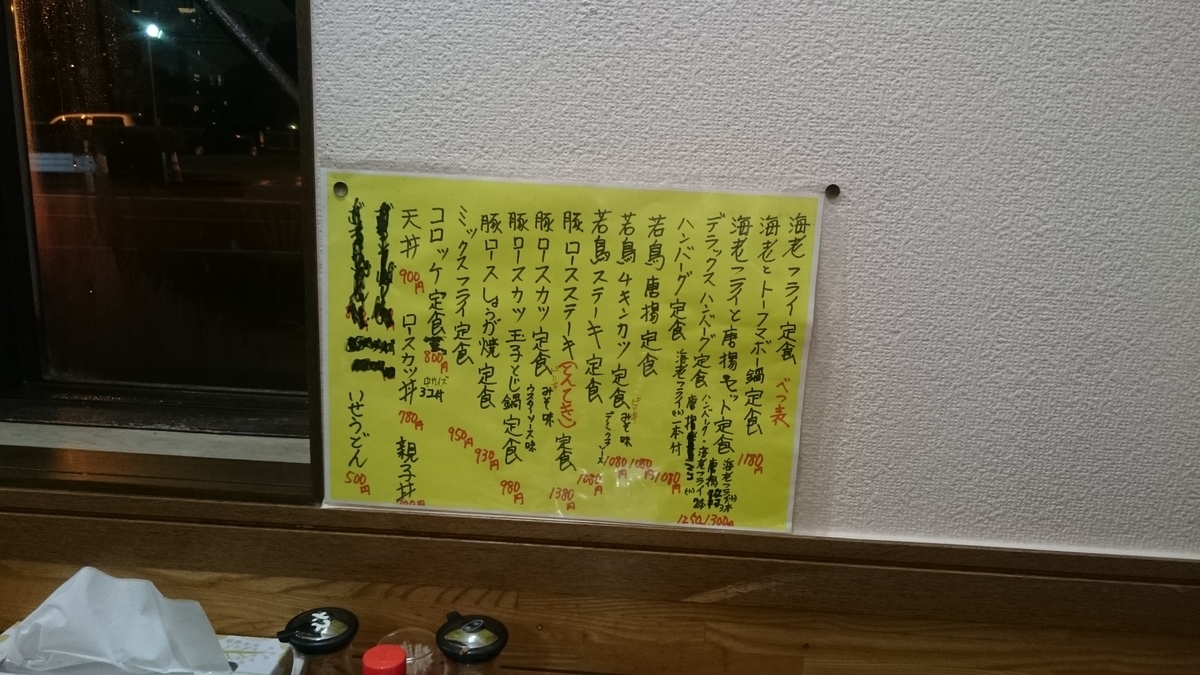 海老フライ定食 べつ表
海老とトーフマボー鍋定食 1180円
海老フライと唐揚セット定食 海老フライ 唐揚 1300円
デラックスハンバーグ定食 ハンバーグ・海老フライ 1250
ハンバーグ定食 海老フライ(小)一本付 1080円
若鳥唐揚定食 1080円
若鳥チキンカツ定食 みそ味 デミソース 1080円
若鳥ステーキ定食 1080円
豚ロースステーキ(とんてき)定食 1380円
豚ロースカツ定食 みそ味 ウスターソース味
豚ロースカツ玉子とじ鍋定食 980円
豚ロースしょうが焼定食 930円
ミックスフライ定食 950円
コロッケ定食 800円
天丼 900円 ロースカツ丼 780円 親子丼
いせうどん 500円